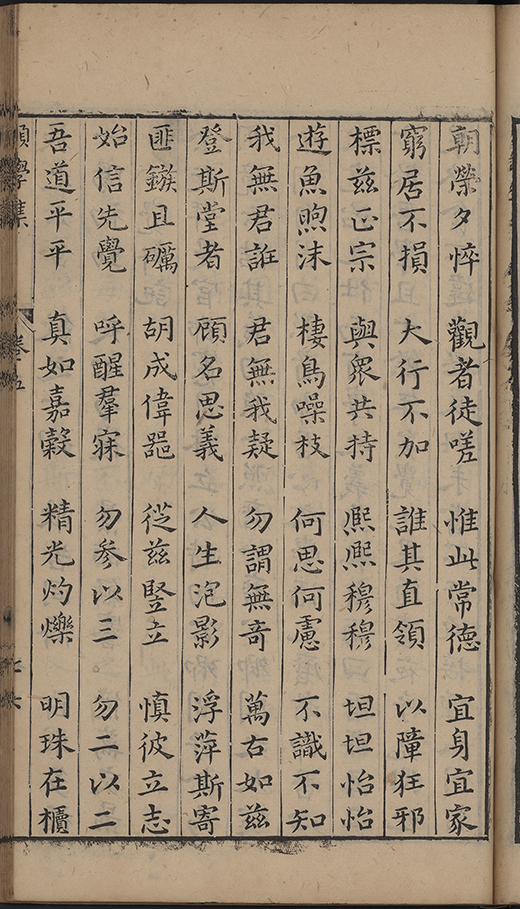 朝榮夕悴 觀者徒嗟 惟此常德 宜身宜家
窮居不損 大行不加 誰其直領 以障狂邪
標茲正宗 與衆共持 熙熙穆穆 坦坦怡怡
遊魚喣沫 棲鳥噪枝 何思何慮 不識不知
我無君誑 君無我疑 勿謂無竒 萬古如茲
登斯堂者 顧名思義 人生泡影 浮萍斯寄
匪鏃且礪 胡成偉噐 從茲豎立 慎彼立志
始信先覺 呼醒羣寐 勿參以三 勿二以二
吾道平平 真如嘉穀 精光灼爍 明珠在櫝
願學集 卷五